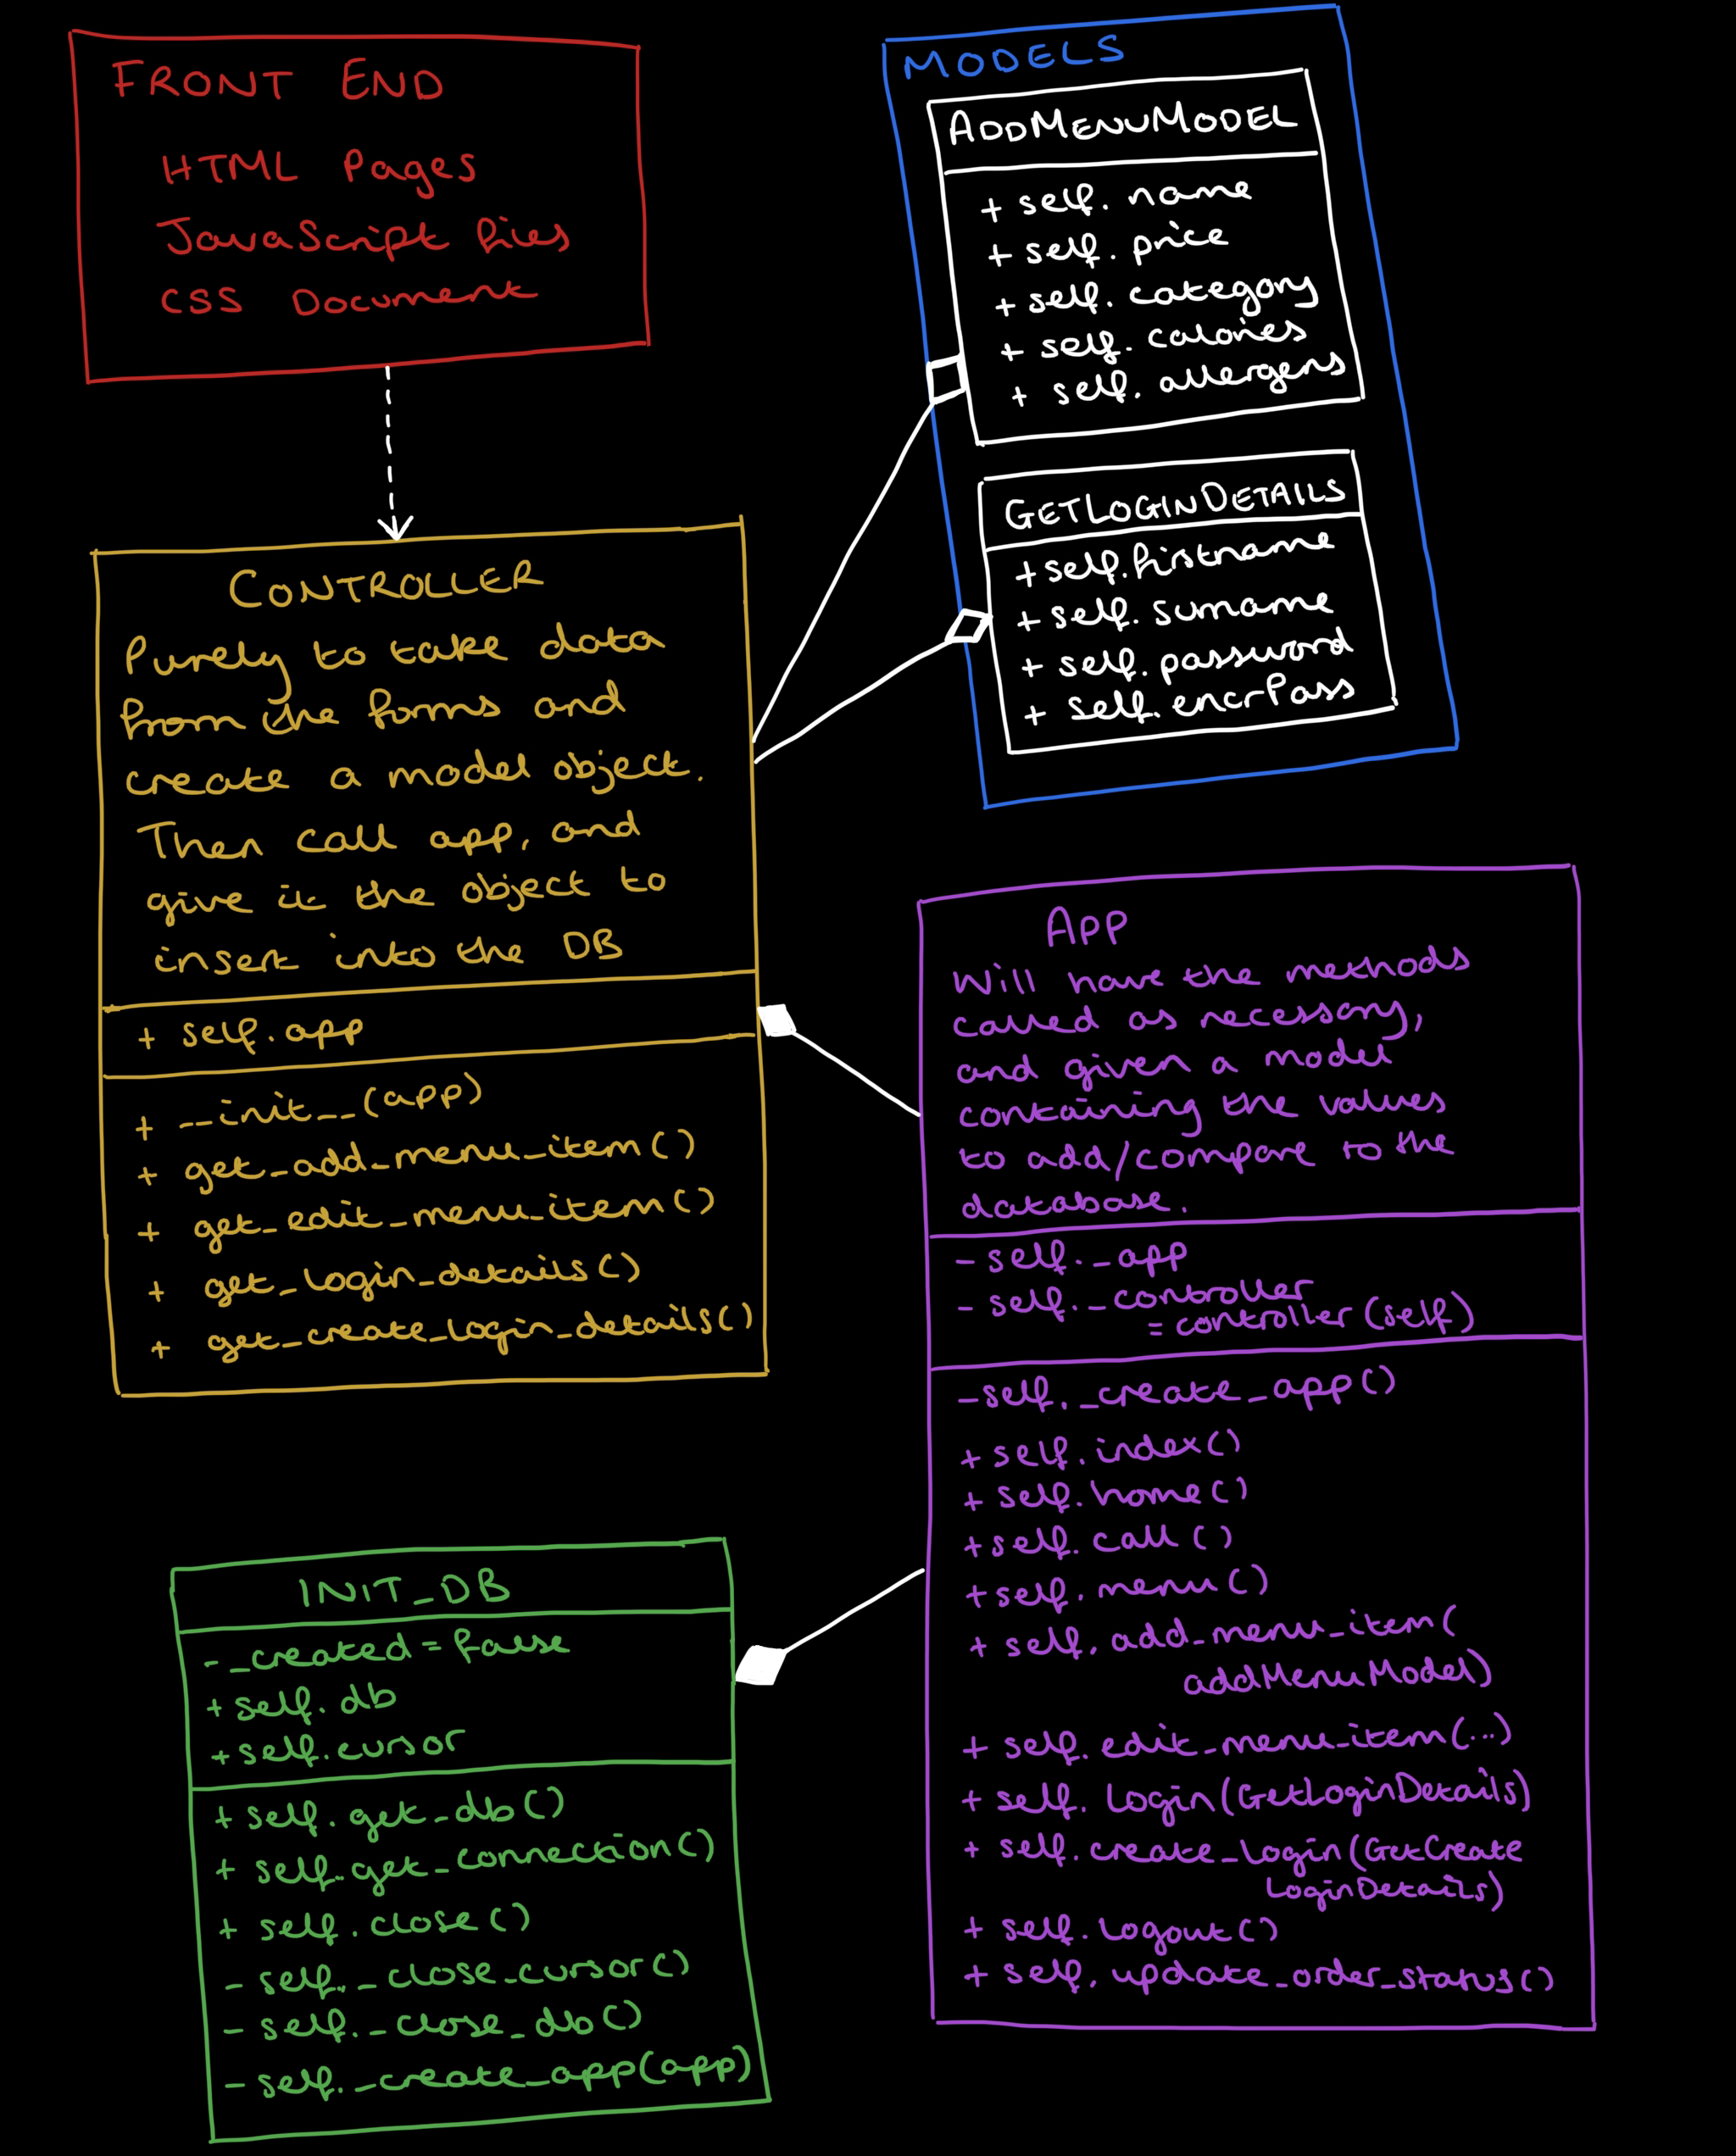 FRONT END
HTML Pages
JavaScript files
CSS Document
MODELS
ADDMENUMODEL
+ self. name
+ self. price
+ self. category
+ self. calories
+ self. allergens
GETLOGINDETAILS
+ self.firstname
+ self. surname
+ self. password
+ self. encrPass
CONTROLLER
Purely to take data
from the forms and
create a model object.
Then call app, and
give it the object to
insert into the DB
+ self.app
+ __init__(app)
+ get_add_menu_item()
+ get_edit_menu_item()
+ get_login_details()
+ get_create_login_details()
APP
Will have the methods
called as necessary,
and given a model
containing the values
to add/compare to the
database.
- self._app
- self._controller
= controller(self)
- self._create_app()
+ self.index()
+ self.home()
+ self.call()
+ self.menu()
+ self.add_menu_item(
addMenuModel)
+ self.edit_menu_item(...)
+ self. Login(GetLoginDetails)
+ self.create_login(GetCreate
LoginDetails)
+ self.Logout()
+ self.update_order_status()
INIT_DB
- _created = False
+ self.db
+ self.cursor
+ self.get_db()
+ self.get_connection()
+ self.close()
- self._close_cursor()
- self._close_db()
- self._create_app(app)